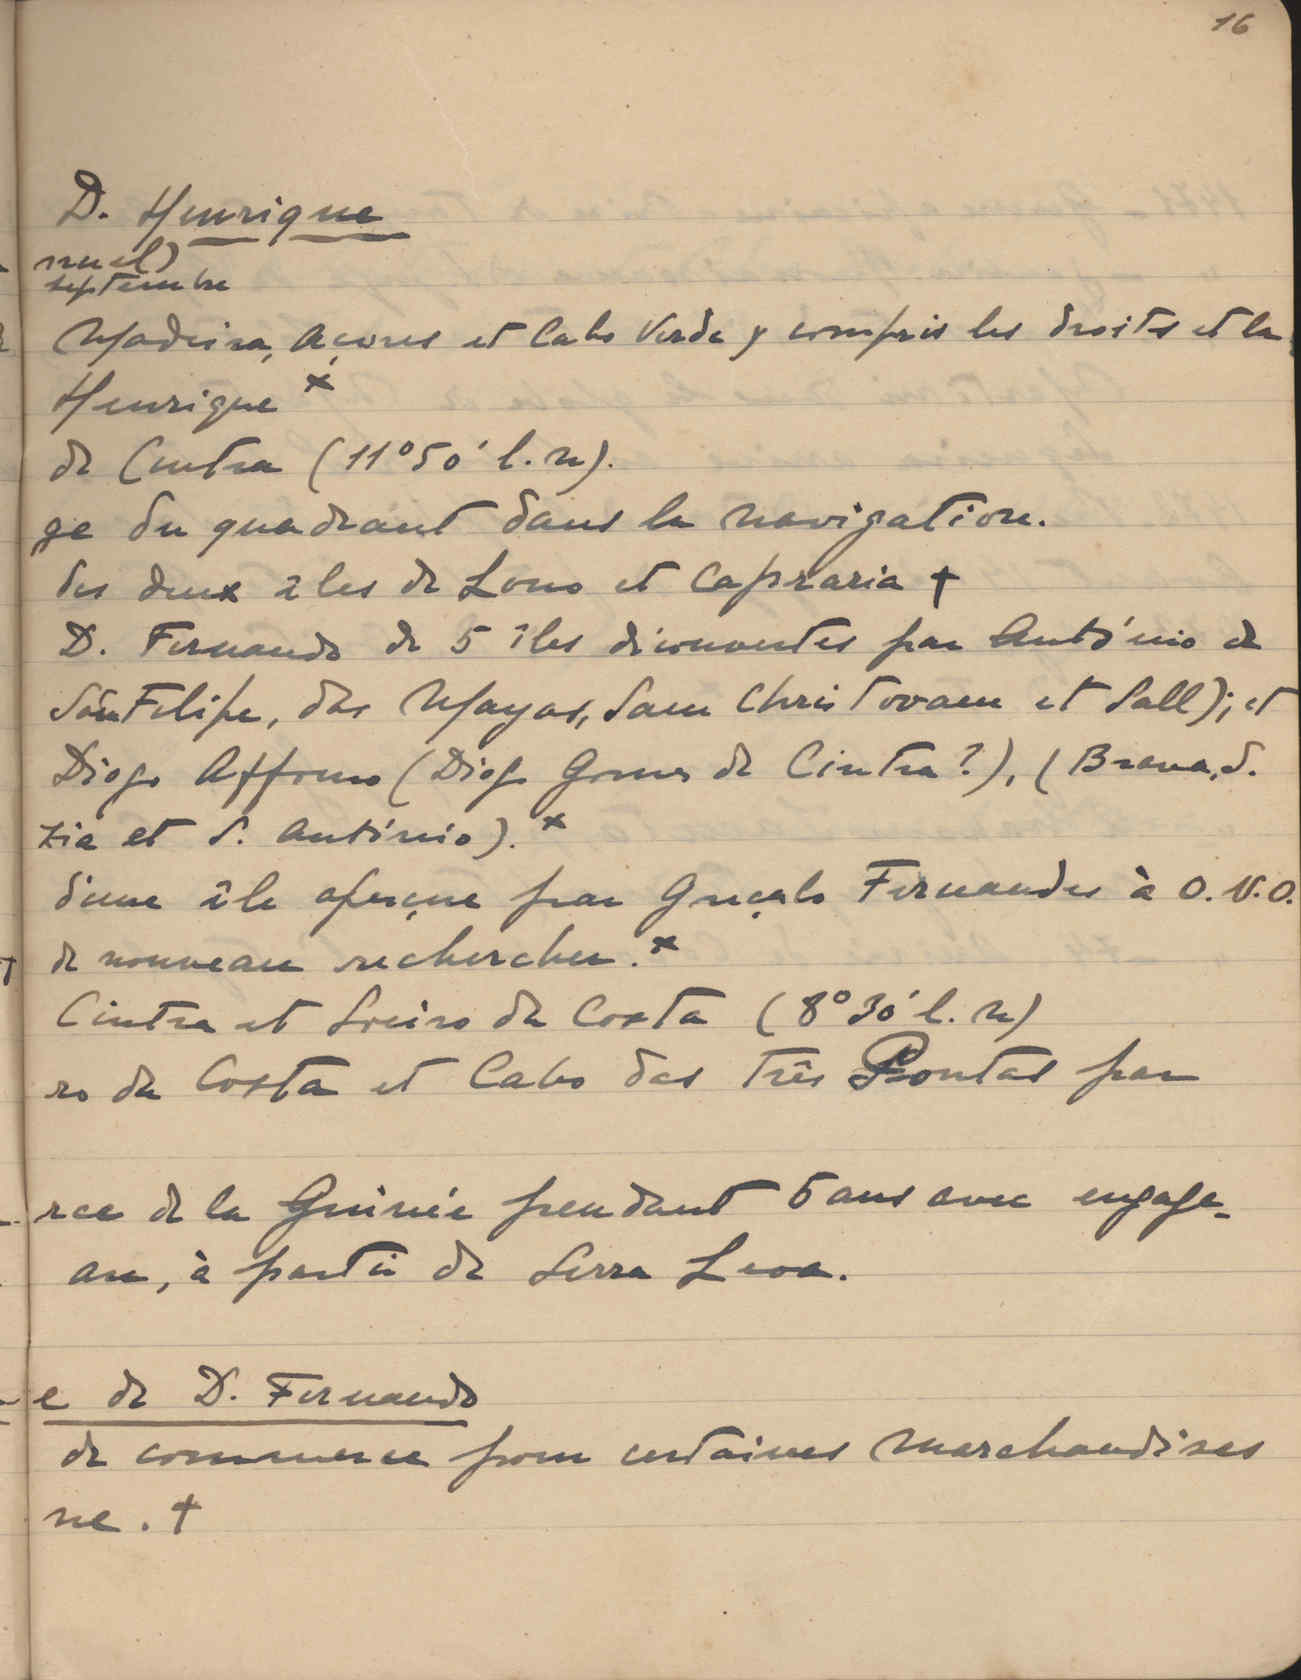 16
D. Henrique
nuel)
septembre
Madeira, Açores et Cabo Verde y compris les droits et la
Henrique x
de Cintra (11°50' l. n).
ge du quadrant dans la navigation.
des deux îles de Lono et Capraria †
D. Fernando de 5 îles découvertes par António de
San Felipe, das Mayas, Sam Christovam et Sall); et
Diogo Affonso (Diogo Gomes de Cintra?), (Brava, S.
zia et S. António). x
d'une île aperçue par Gonçalo Fernandes à O. N. O.
de nouveau rechercher. x
Cintra et Soeiro da Costa (8°30' l. n)
ro da Costa et Cabo das três Pontas par
rce de la Guinée pendant 5 ans avec engage-
an, à partir de Serra Leoa.
e de D. Fernando
de commerce pour certaines marchandises
ne. †